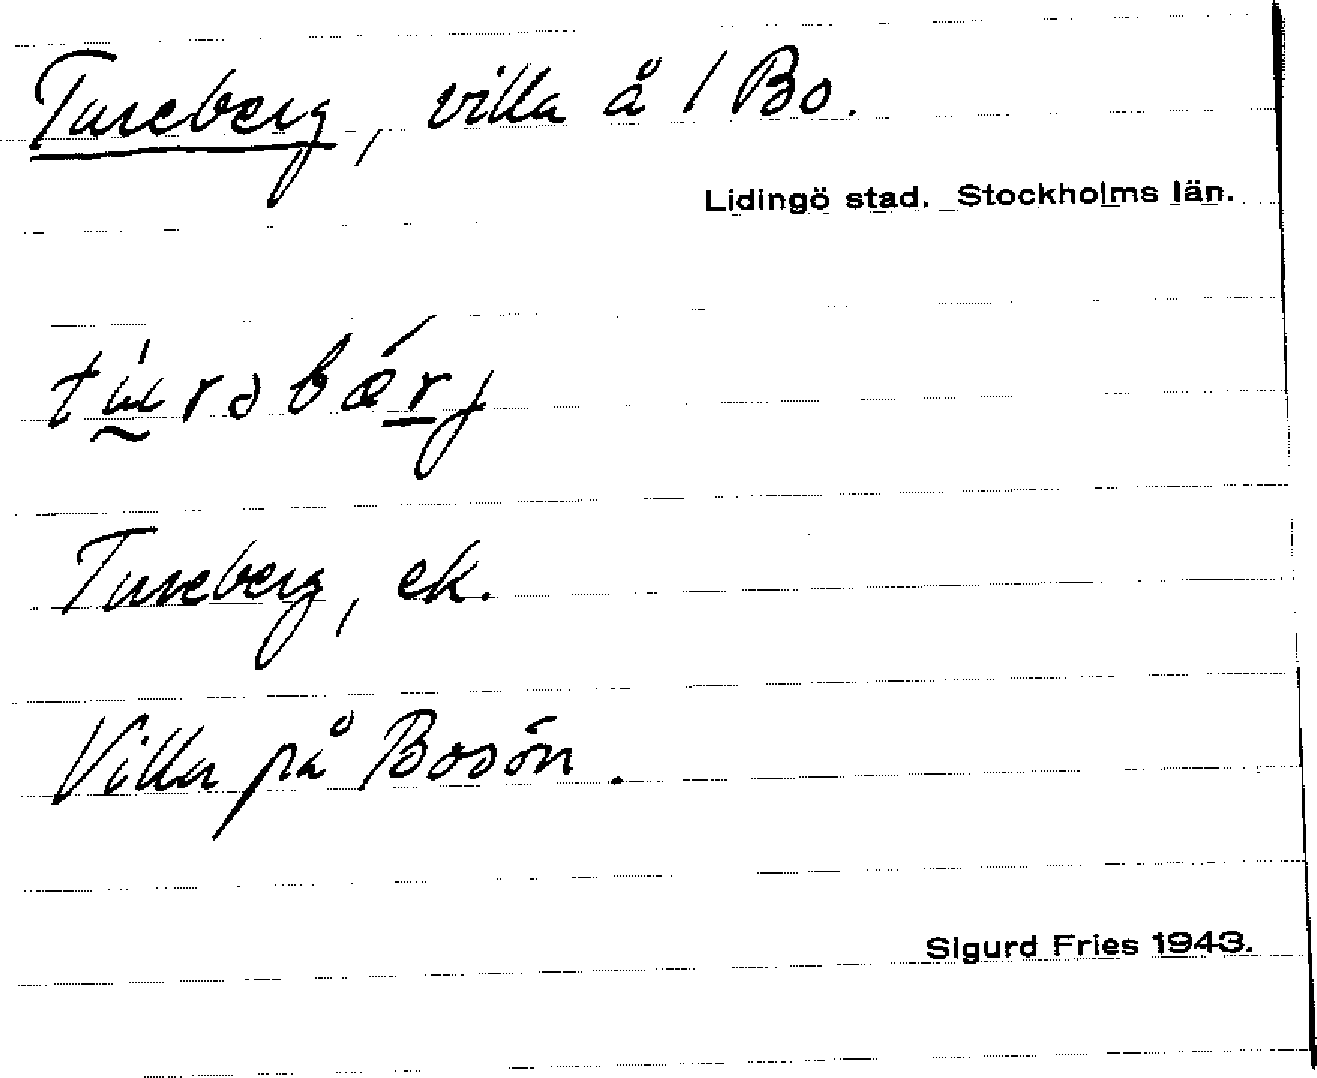 Tureberg, villa å 1 Bo.
Lidingö stad. Stockholms län.
Tureberg, ek.
Villa på Bosön.
Sigurd Fries 1943.